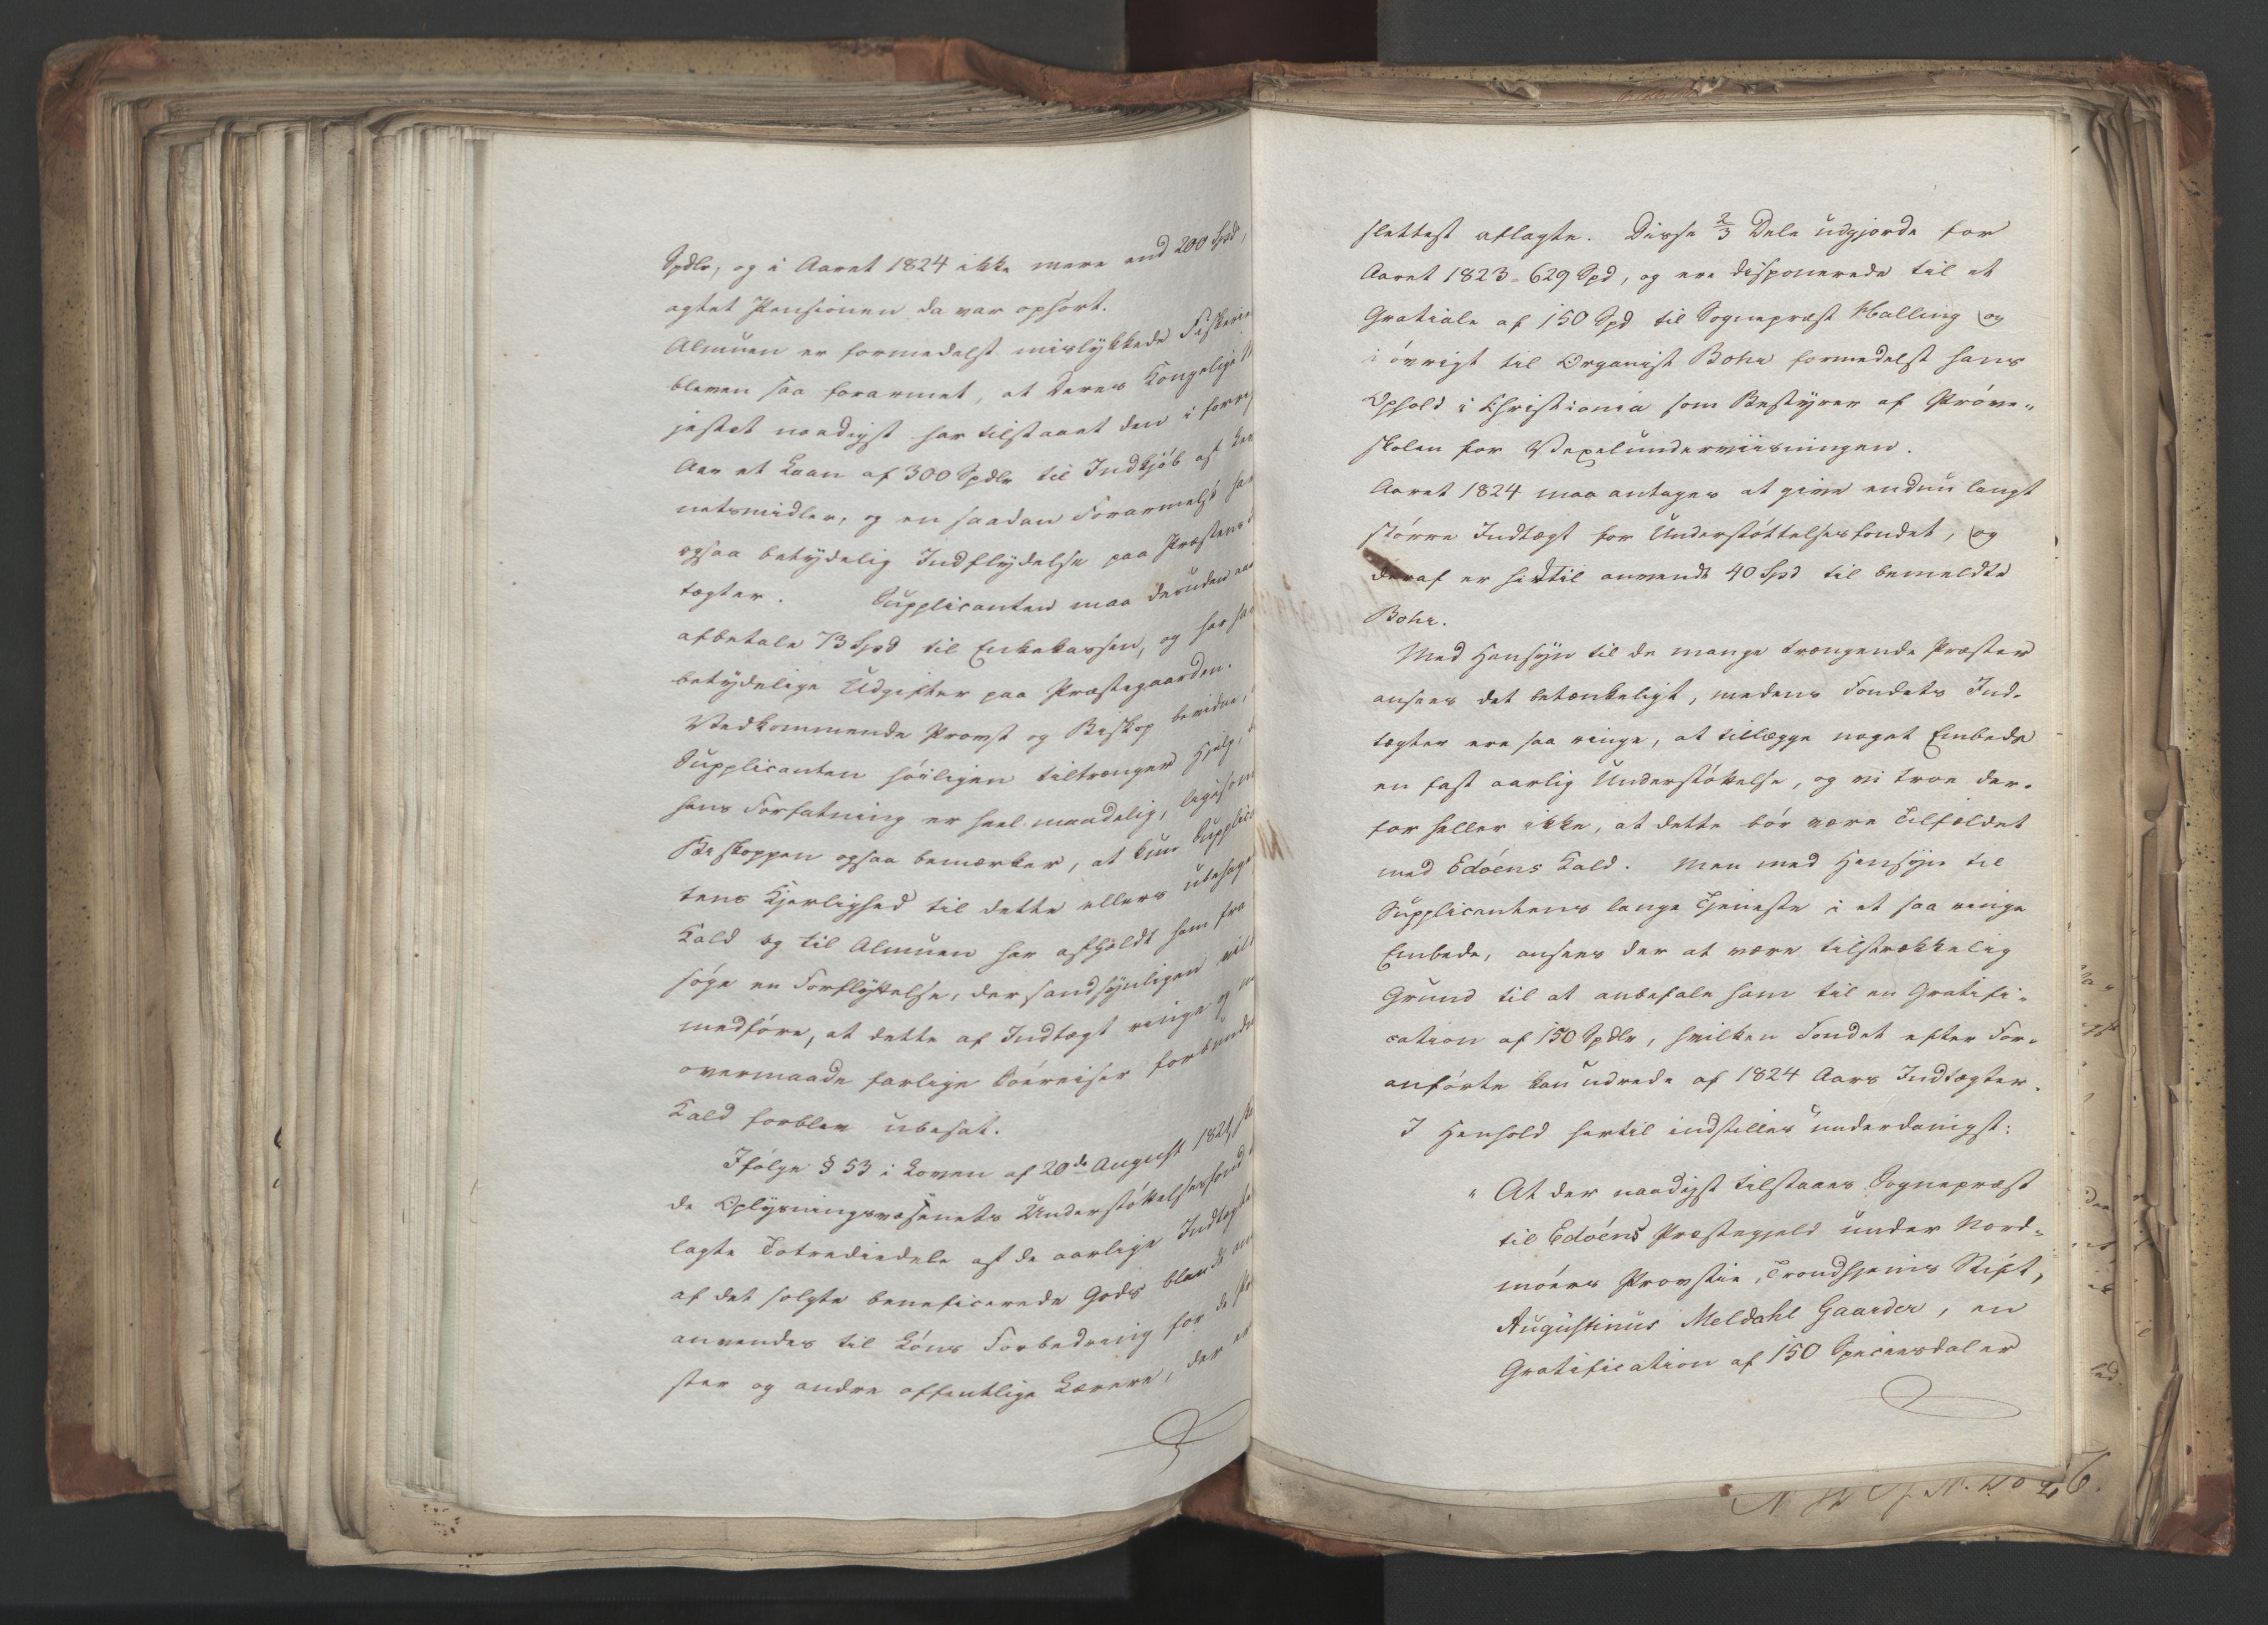 Spdlr, og i Aaret 1824 ikke mere end 200 Spd,
agtet Pensionen da var ophørt.
Almuen er formedelst mislykkede Fiskerie
bleven saa forarmet, at Deres Kongelige M
jestet naadigst har tilstaaet den i forrig
Aar et Laan af 300 Spdlr til Indkjöb af
netsmidler, og en saadan Forarmelse har
ogsaa betydelig Indflydelse paa Præstens
tægter. Supplicanten maa desuden aar
afbetale 73 Spd til Enkekassen, og har havt
betydelige Udgifter paa Præstegaarden.
Vedkommende Provst og Biskop bevidne,
Supplicanten höiligen tiltrænger Hjelp,
hans Forfatning er heel maadelig, ligesom
Biskoppen ogsaa bemærker, at kun Supplican
tens Kjerlighed til dette ellers ubehage
Kald og til Almuen har afholdt ham fra
söge en Forflyttelse, der sandsynligen vilde
medföre, at dette af Indtægt ringe og
overmaade farlige Söereiser forbundne
Kald forblev ubesat.
Ifölge § 53 i Loven af 20de August 1821, skul
de Oplysningsvæsenets Understöttelsesfond
lagte Totrediedele af de aarlige Indtægter
af det solgte beneficerede Gods blandt
anvendes til Löns Forbedring for de
ster og andre offentlige Lærere, der ere
slettest aflagte. Disse 2/3 Dele udgjorde for
Aaret 1823 - 629 Spd, og ere disponerede til et
Gratiale af 150 Spd til Sognepræst Malling og
i övrigt til Organist Bohr formedelst hans
Ophold i Christiania som Bestyrer af Pröve-
skolen for Vexelunderviisningen.
Aaret 1824 maa antages at give endnu langt
större Indtægt for Understöttelsesfondet, og
deraf er hidtil anvendt 40 Spd til bemeldte
Bohr.
Med Hensyn til de mange trængende Præster
ansees det betænkeligt, medens Fondets Ind-
tægter ere saa ringe, at tillægge noget Embede
en fast aarlig Understöttelse, og vi troe der-
for heller ikke, at dette bör være Tilfældet
med Edöens Kald. Men med Hensyn til
Supplicantens lange Tjeneste i et saa ringe
Embede, ansees der at være tilstrækkelig
Grund til at anbefale ham til en Gratifi-
cation af 150 Spdlr, hvilken Fondet efter For-
anförte kan udrede af 1824 Aars Indtægter.
I Henhold hertil indstilles underdanigst:
"At der naadigst tilstaaes Sognepræst
til Edöens Præstegjeld under Nord-
möers Provstie, Trondhjems Stift,
Augustinus Meldahl Gaarder, en
Gratification af 150 Speciesdaler